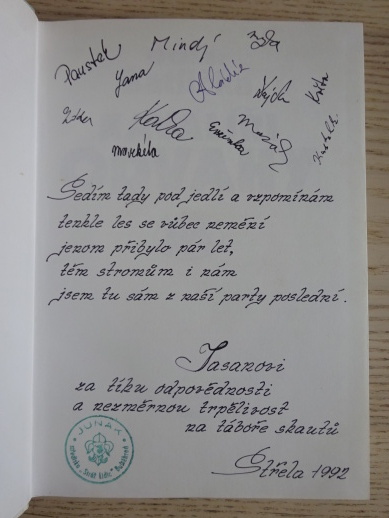 Paustek Mindj Iza
Jana Aládin Vejch Krita
Kadla Emínka
Moskyta
Sedím tady pod jedlí a vzpomínám
tenhle les se vůbec nemění
jenom přibylo pár let,
těm stromům i nám
jsem tu sám z naší party poslední.
Jasanovi
za tíhu odpovědnosti
a nezměrnou trpělivost
na táboře skautů
Střela 1992
JUNÁK